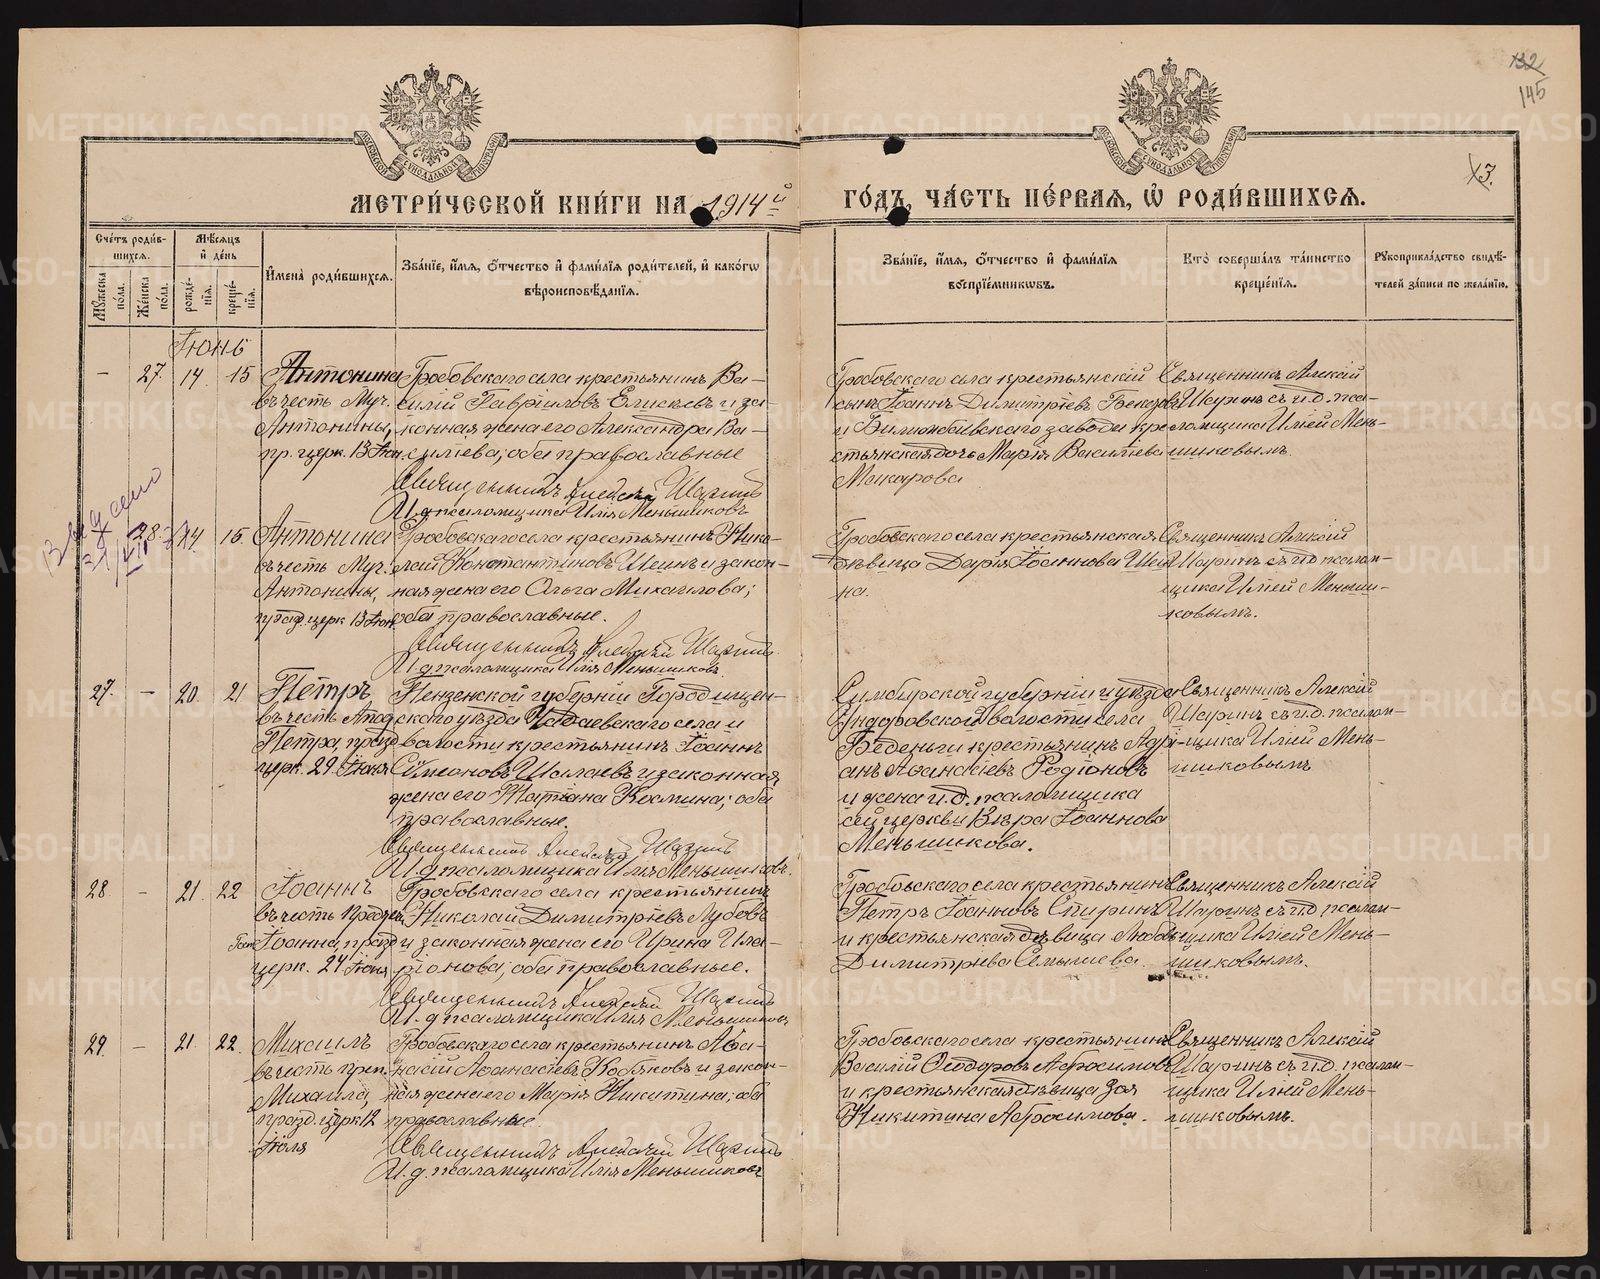 132
145
13.
МЕТРИ́ЧЕСКОЙ КНИ́ГИ НА 1914й ГО́ДЪ, ЧА́СТЬ ПЕ́РВАЯ, Ѡ РОДИ́ВШИХСЯ.
Сче́тъ роди́в-
шихся.
Мѣ́сяцъ
и де́нь
Мꙋ́жеска
по́ла.
Же́нска
по́ла.
рожде́-
нїя.
креще́-
нїя.
Имена̀ роди́вшихся.
Зва́нїе, и́мя, ѻ́тчество и фами́лїя роди́телей, и како́гѡ
вѣроисповѣ́данїя.
Зва́нїе, и́мя, ѻ́тчество и фами́лїя
воспрїе́мникѡвъ.
Кто̀ соверша́лъ та́инство
креще́нїя.
Рꙋкоприкла́дство свидѣ́-
телей за́писи по жела́нїю.
Іюнь
– 27. 14. 15
Антонина
въ честь Муч.
Антонины,
пр. церк. 13 Іюн.
Гробовскаго села крестьянинъ Ва-
силій Гавріиловъ Елисѣевъ и за-
конная жена его Александра Ва-
силіева; оба православные
Священникъ Алексій Шаринъ
И. д. псаломщика Илія Меньшиковъ
Гробовскаго села крестьянскій
сынъ Іоаннъ Димитріевъ
и Билимбаевскаго завода кре-
стьянская дочь Марія Василіева
Макарова
Священникъ Алексій
Шаринъ съ и. д. пса-
ломщика Иліей Мень-
шиковымъ.
28. 14 15.
Антонина
въ честь Муч.
Антонины,
празд. церк 13 Іюн.
Гробовскаго села крестьянинъ Нико-
лай Константиновъ Шеинъ и закон-
ная жена его Ольга Михаилова;
оба православные.
Священникъ Алексій Шаринъ
И. д. псаломщика Илія Меньшиковъ
Гробовскаго села крестьянская
дѣвица Дарія Іоаннова Шеи-
на.
Священникъ Алексій
Шаринъ съ и.д. псалом-
щика Иліей Меньши-
ковымъ.
27. – 20. 21
Петръ
въ честь Апос.
Петра, празд.
церк. 29 Іюня
Пензенской губерніи Городищен-
скаго уѣзда Чаадаевскаго села и
волости крестьянинъ Іоаннъ
Сѵмеоновъ и законная
жена его Татіана Космина; оба
православные.
Священникъ Алексій Шаринъ
И. д. псаломщика Илія Меньшиковъ.
Симбирской губерніи и уѣзда
Ундоровской волости села
Беденьги крестьянинъ Адрі-
анъ Аѳанасіевъ Родіоновъ
и жена и. д. псаломщика
сей церкви Вѣра Іоаннова
Меньшикова.
Священникъ Алексій
Шаринъ съ и. д. псалом-
щика Иліей Мень-
шиковымъ
28 – 21. 22
Іоаннъ
въ честь Предтеч.
Іоанна, празд.
церк. 24 Іюня
Гробовскаго села крестьянинъ
Николай Димитріевъ Лубовъ
и законная жена его Ирина Ила-
ріонова; оба православные.
Священникъ Алексій Шаринъ
И. д. псаломщика Илія Меньшиковъ
Гробовскаго села крестьянинъ
Петръ Іоанновъ Спиринъ
и крестьянская дѣвица Любовь
Димитріева
Священникъ Алексій
Шаринъ съ и.д. псалом-
щика Иліей Мень-
шиковымъ.
29. – 21 22.
Михаилъ
въ честь преп.
Михаила,
празд. церк 12
Іюля
Гробовскаго села крестьянинъ Аѳа-
насій Аѳанасіевъ Кобяковъ и закон-
ная жена его Марія Никитина; оба
православные.
Священникъ Алексій Шаринъ
И. д. псаломщика Илія Меньшиковъ
Гробовскаго села крестьянинъ
Василій Ѳеодоровъ Абросимовъ
и крестьянская дѣвица Зоя
Никитина Абросимова.
Священникъ Алексій
Шаринъ съ и.д. псалом-
щика Иліей Мень-
шиковымъ.